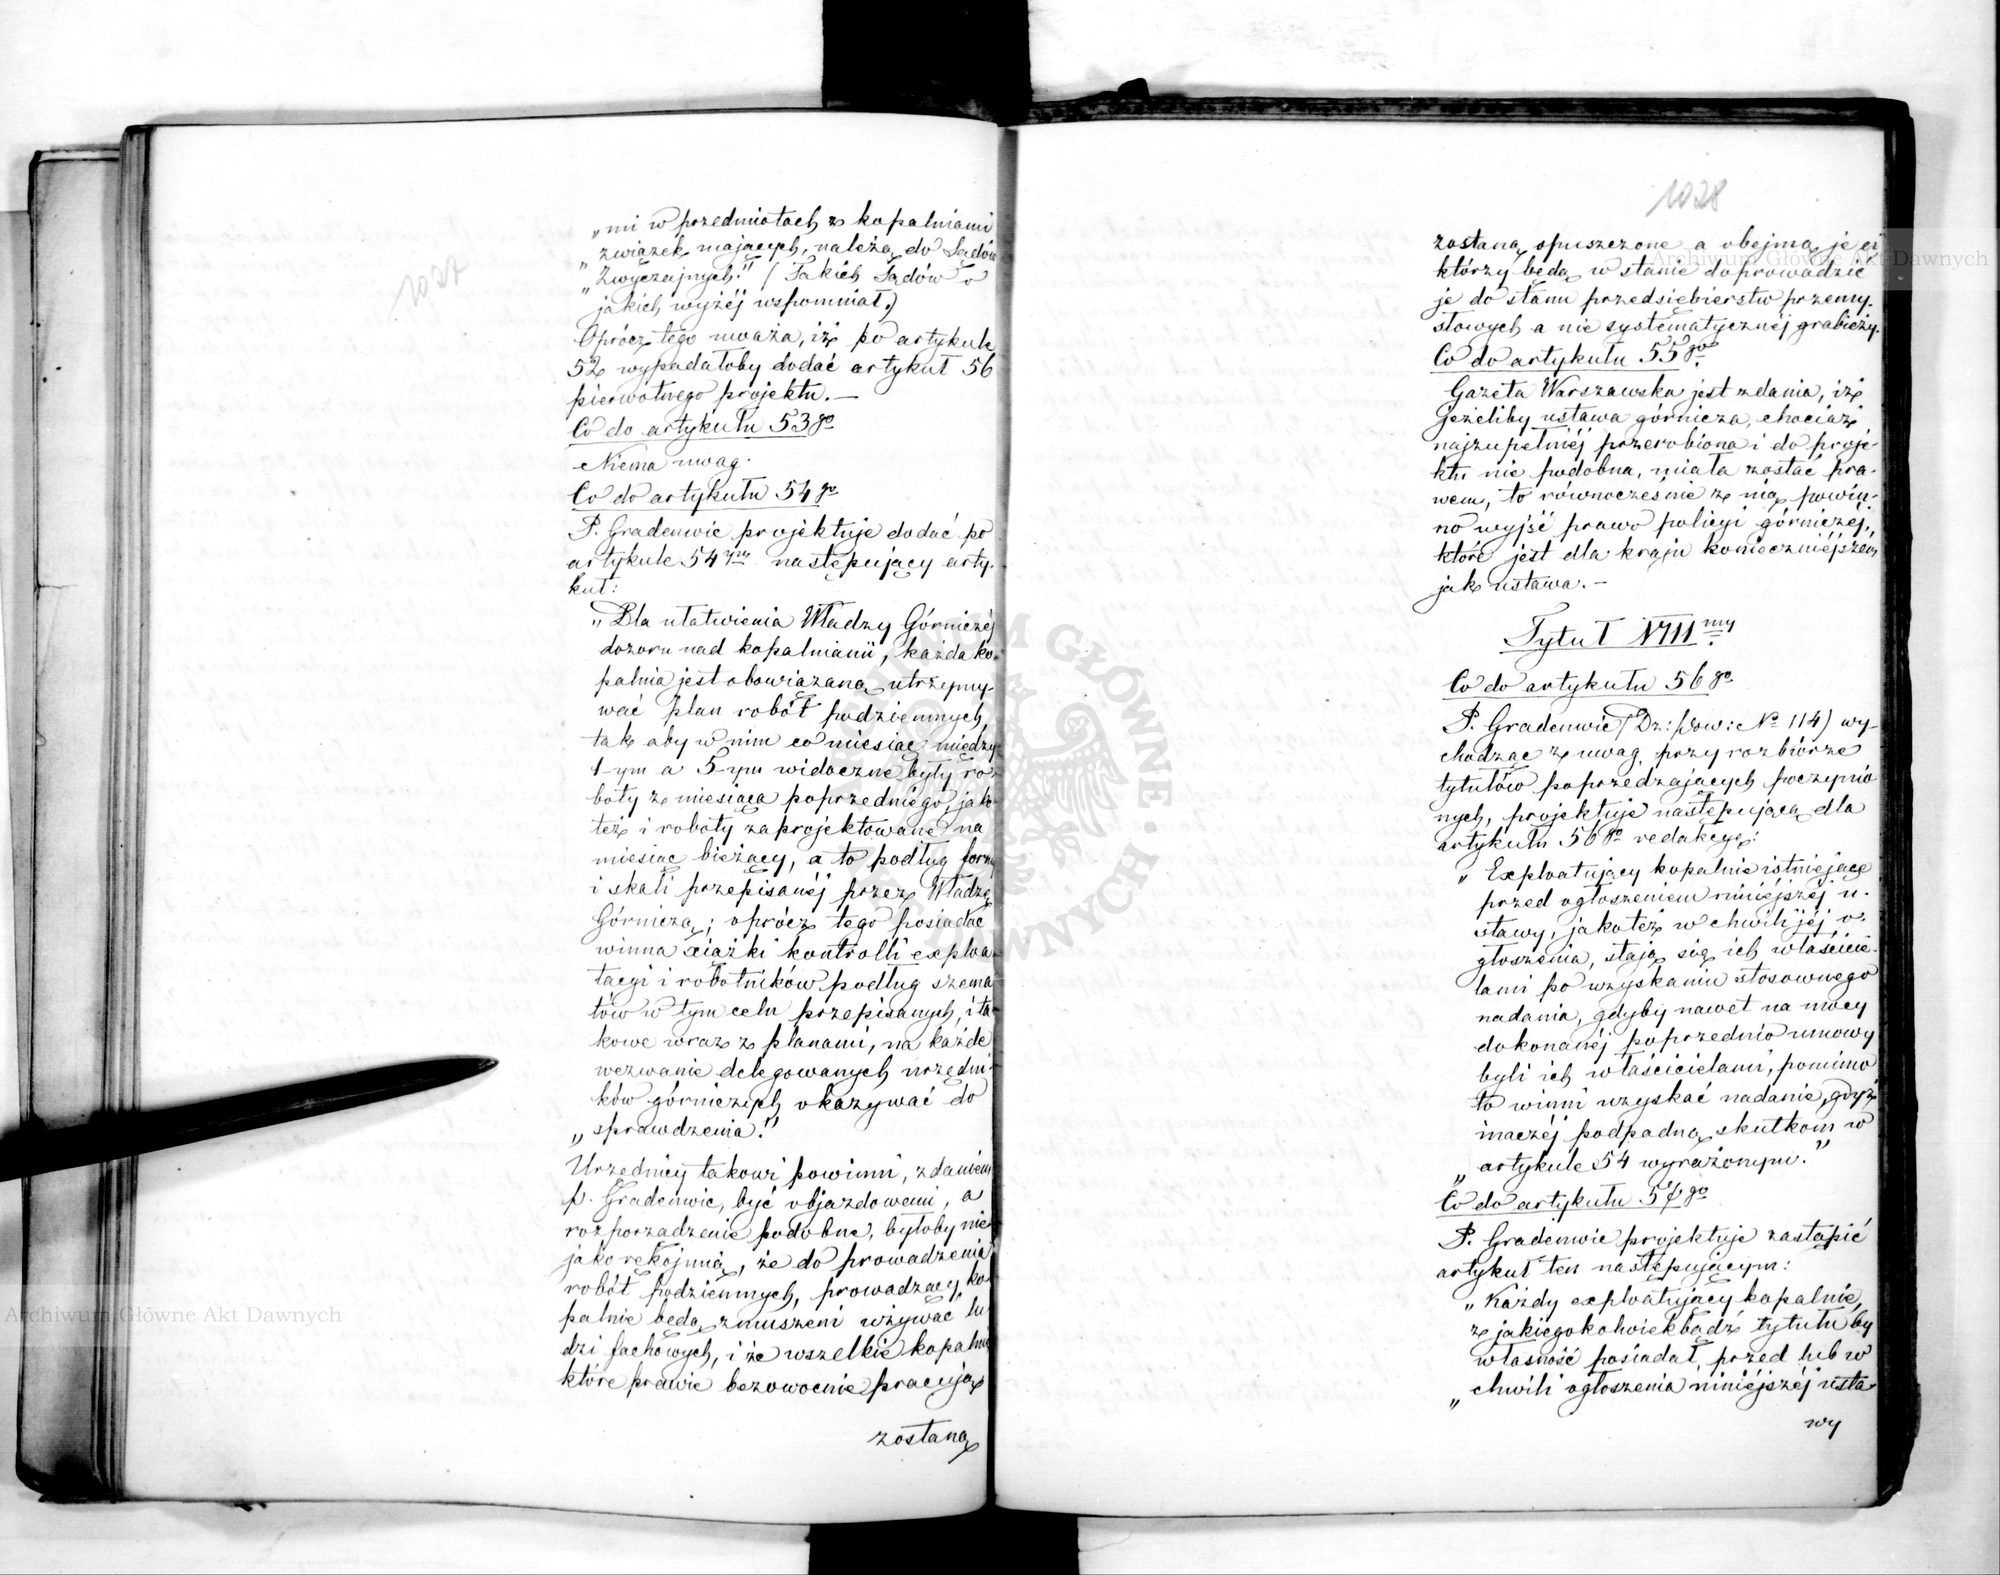 1027
„mi w przedmiotach z kopalniami
„ związek mających, należą do Sądów
„ Zwyczajnych." (Takich Sądów o
jakich wyżéj wspomniał.)
Oprócz tego uważa, iż po artykule
52 wypadałoby dodać artykuł 56
pierwotnego projektu. —
Co do artykułu 53go
Niema uwag.
Co do artykułu 54go
P. Gradenwic projektuje dodać po
artykule 54ym następujący arty-
kuł:
„Dla ułatwienia Władzy Górniczéj
dozoru nad kopalniami, każda ko-
palnia jest obowiązaną utrzymy-
wać plan robót podziemnych,
tak aby w nim co miesiąc między
1-ym a 5-ym widoczne były ro-
boty z miesiąca poprzedniego, jako
też i roboty zaprojektowane na
miesiąc bieżący, a to podług formy
i skali przepisanéj przez Władzę
Górniczą; oprócz tego posiadać
winna xiążki kontrolli exploa-
tacyi i robotników podług szema-
tów w tym celu przepisanych, i ta-
kowe wraz z planami, na każde
wezwanie delegowanych urzędni-
ków górniczych okazywać do
„ sprawdzenia."
Urzędnicy takowi powinni, zdaniem
p. Gradenwic, być objazdowemi, a
rozporządzenie podobne, byłoby nie-
jako rękojmią, że do prowadzenia
robót podziemnych, prowadzący ko-
palnie będą zmuszeni używać lu-
dzi fachowych, i że wszelkie kopalnie
które prawie bezowocnie pracują
zostaną
1028
zostaną opuszczone a obejmą je ci
którzy będą w stanie doprowadzić
je do stanu przedsiębierstw przemy-
słowych a nie systematycznéj grabieży.
Co do artykułu 55go
Gazeta Warszawska jest zdania, iż
jeżeliby ustawa górnicza, chociaż
najzupełniéj przerobiona i do proje-
ktu nie podobna, miała zostać pra-
wem, to równocześnie z nią powin-
no wyjść prawo policyi górniczéj,
które jest dla kraju konieczniejszém
jak ustawa. —
Tytuł VIIImy
Co do artykułu 56go
P. Gradenwic (Dz: pow: No 114) wy-
chodząc z uwag, przy rozbiorze
tytułów poprzedzających poczynio-
nych, projektuje następującą dla
artykułu 56go redakcyę:
„ Exploatujący kopalnie istniejące
przed ogłoszeniem niniejszéj u-
stawy, jakoteż w chwili jéj o-
głoszenia, stają się ich właścicie-
lami po uzyskaniu stosownego
nadania, gdyby nawet na mocy
dokonanéj poprzednio umowy
byli ich właścicielami, pomimo
to winni uzyskać nadanie, gdyż
inaczéj podpadną skutkom w
„ artykule 54 wyrażonym."
Co do artykułu 57go
P. Gradenwic projektuje zastąpić
artykuł ten następującym:
„ Każdy exploatujący kopalnie,
z jakiegokolwiekbądź tytułu by
własność posiadał, przed lub w
„ chwili ogłoszenia niniejszéj usta-
wy
Archiwum Główne Akt Dawnych
Archiwum Główne Akt Dawnych
ARCHIWUM GŁÓWNE AKT DAWNYCH